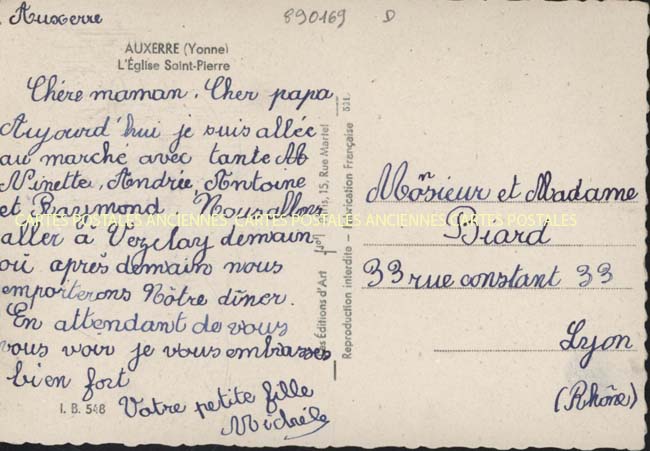 Auxerre
890169 D
AUXERRE (Yonne)
L'Église Saint-Pierre
Chère maman. Cher papa
Aujourd'hui je suis allée
au marché avec tante M
Ninette, Andrée, Antoine
et Raymond. Nous allons
aller à Vezelay demain
où après demain nous
emporterons Nôtre dîner.
En attendant de vous
vous voir je vous embrasses
bien fort
Votre petite fille
Michèle
I. B. 548
Les Editions d'Art 15, Rue Martel
Reproduction interdite - Fabrication Française
Monsieur et Madame
Biard
33 rue constant 33
Lyon
(Rhône)
CARTES POSTALES ANCIENNES CARTES POSTALES ANCIENNES CARTES POSTALES